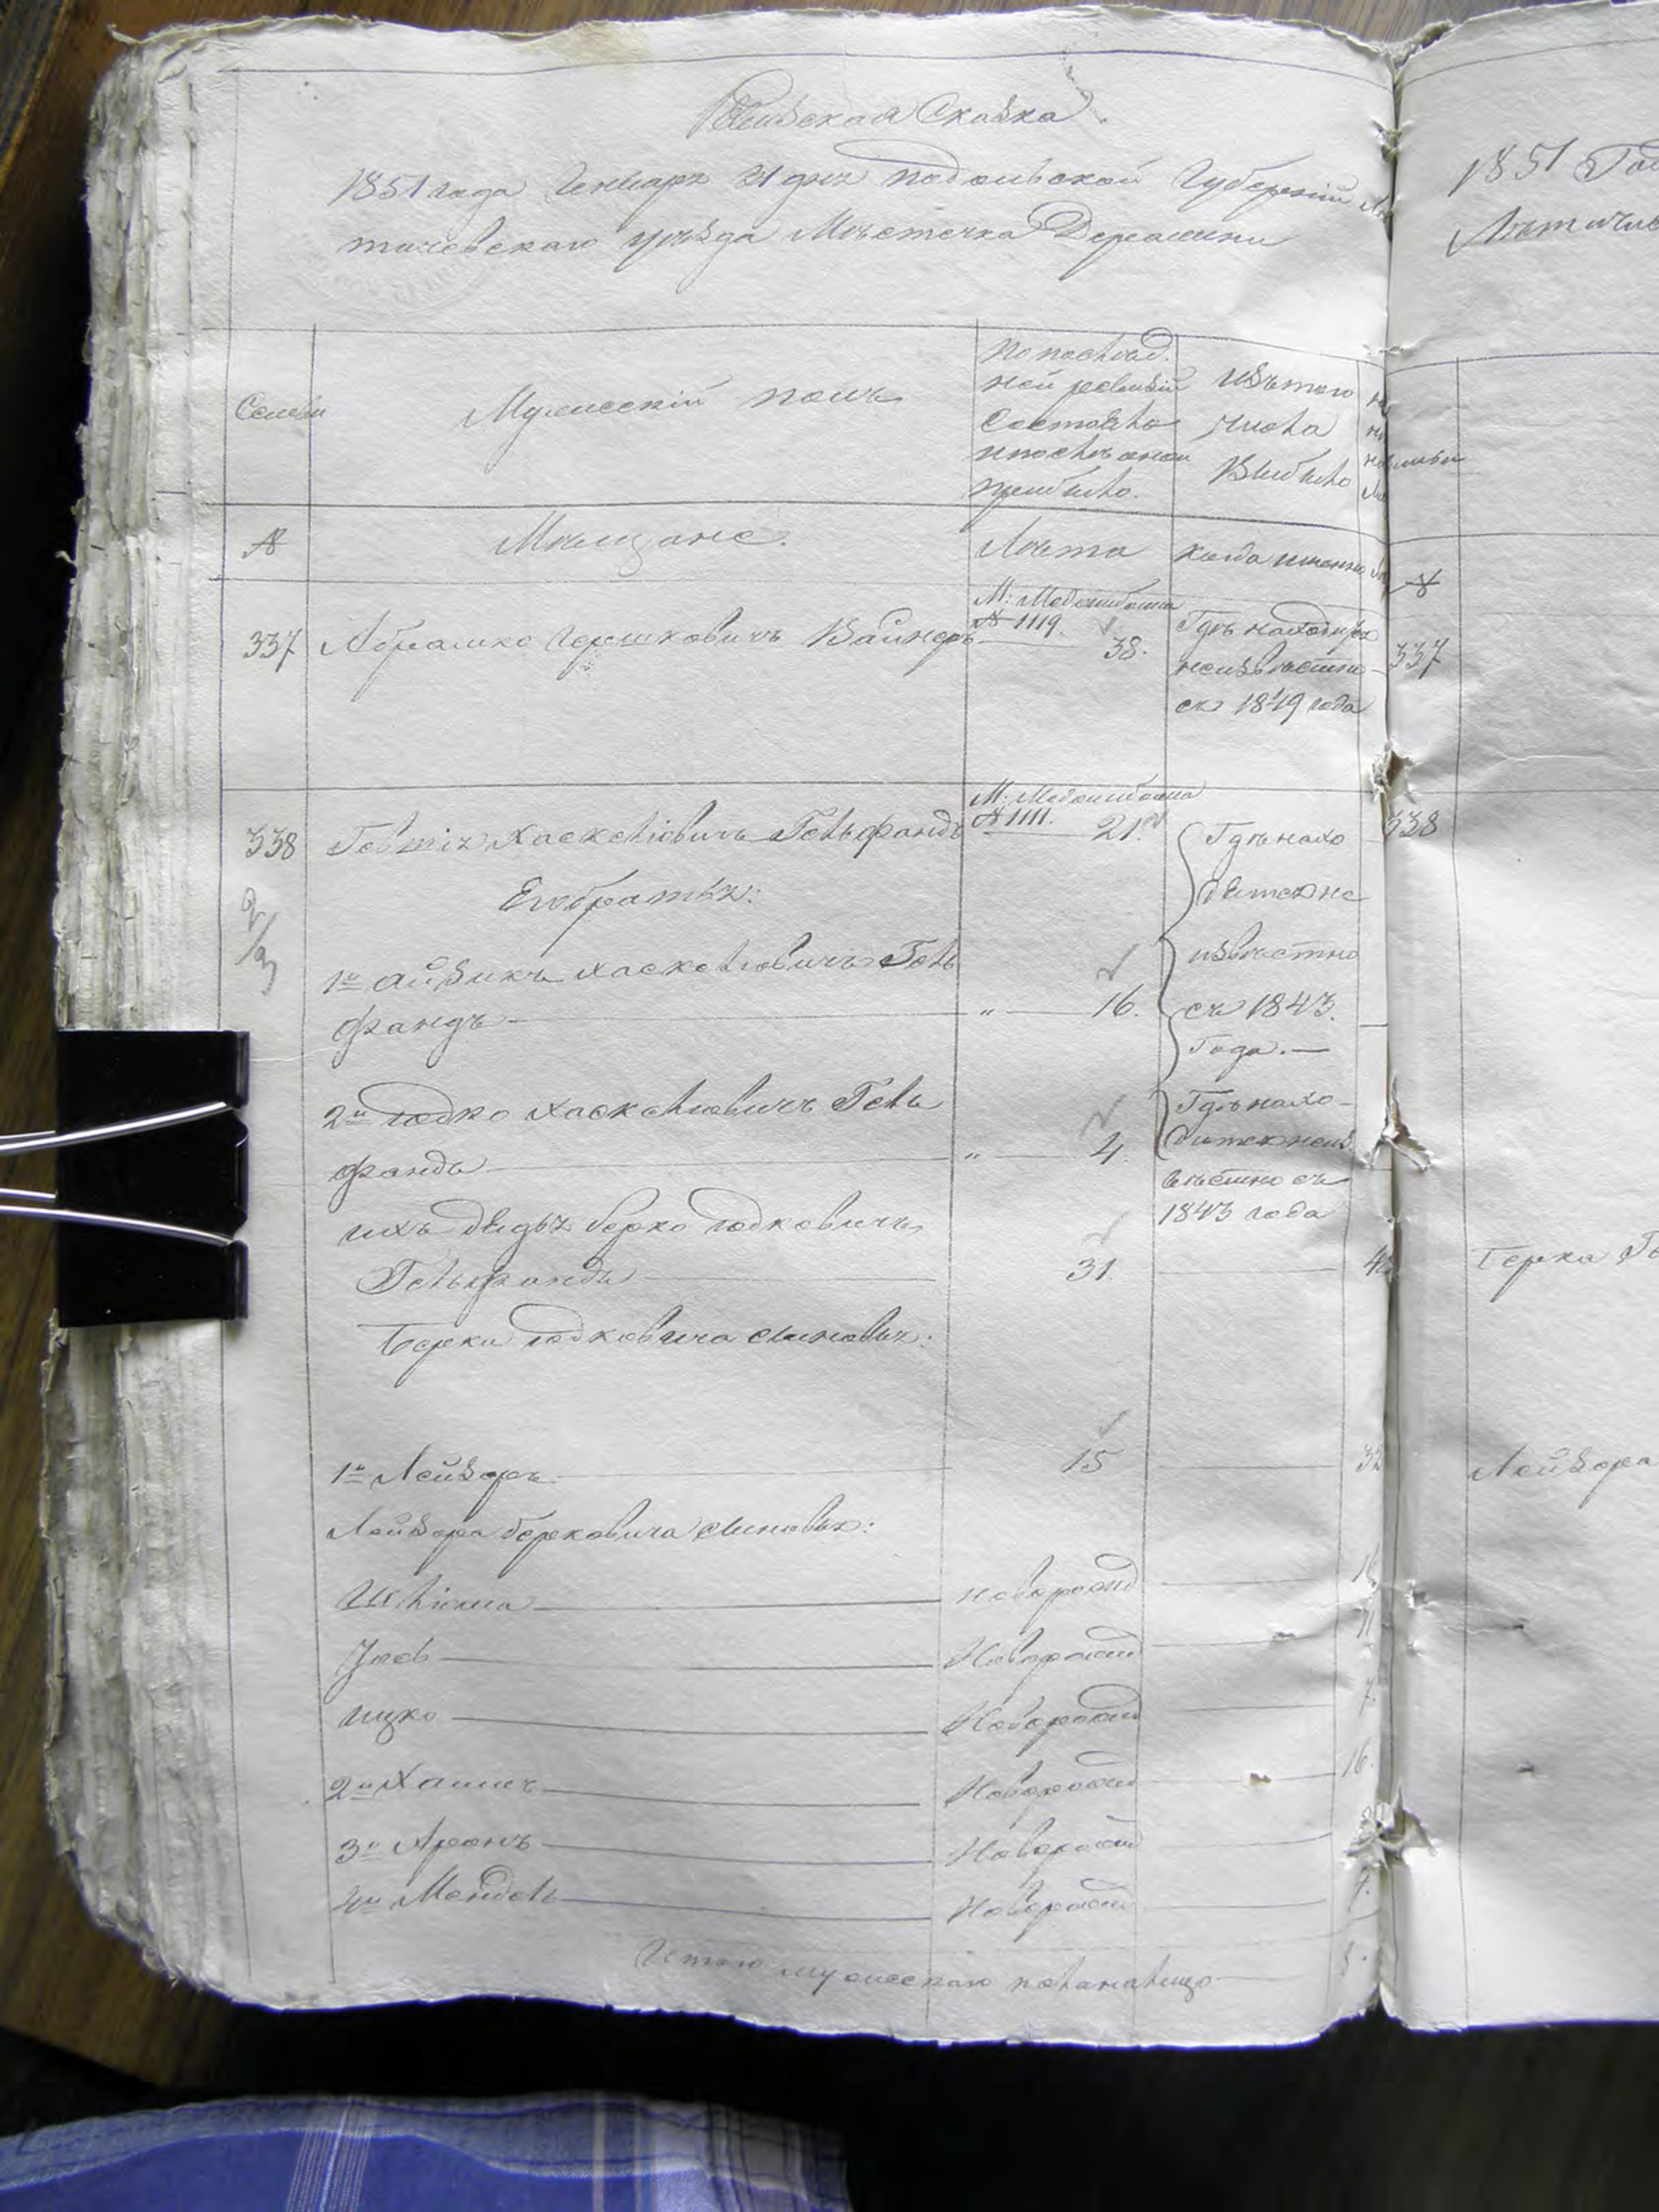 Ревизская Сказка.
1851 года Генваря 31 дня Подольской Губернии Ле
тичевскаго уезда Местечка Деражни
Семьи
Мужескій полъ
По послед.
ней ревизіи
Состояло
и после оной
прибыло.
Изъ того
числа
Выбыло
№
Мещане.
Лета
когда именно
337
Абрамко Гершковичъ Вайнеръ
М: Меджибожа
№ 1119.
38.
Где находится
неизвестно
съ 1849 года
337
338
Хаскелиовичъ Гельфандъ
М: Меджибожа
№ 1111.
21.
Где нахо
дится не
известно
съ 1843.
Года.—
338
Его братья:
1й Айзикъ Хаскелиовичъ Гель
фандъ
"
16.
2й Юдко Хаскелиовичъ Гель
фандъ
"
4.
Где нахо-
дится неиз
вестно съ
1843 года
ихъ дядя Берко Юдковичъ
Гельфандъ
31.
Берки Юдковича сыновья:
1й Лейзоръ
15
32
Лейзора Берковича сыновья:
Шлиома
новорожд
Новорожд
Ицко
Новорожд
7
2й Хаимъ
Новорожд
16.
3й Аронъ
Новорожд
4й Мендель
Новорожд
Итого мужескаго пола налицо
1851 Го
Берка Ге
Лейзора